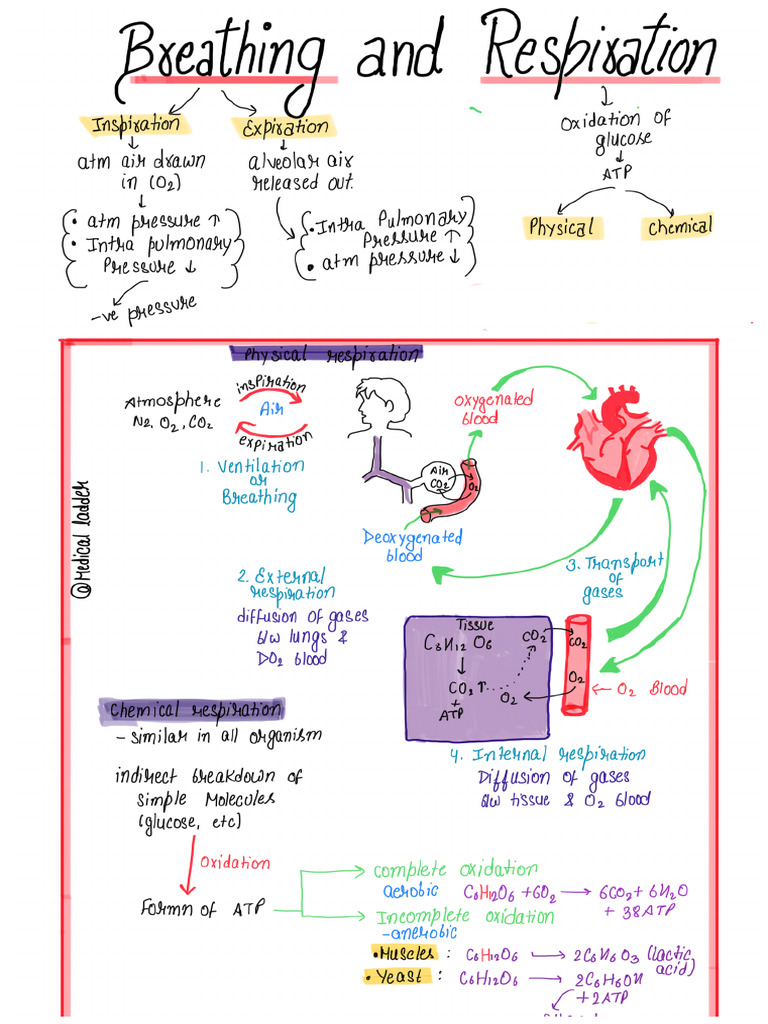 Breathing and Respiration
Inspiration
atm air drawn
in (O2)
• atm pressure ↑
• Intra pulmonary
Pressure ↓
-ve pressure
Expiration
alveolar air
released out.
• Intra Pulmonary
Pressure ↑
• atm pressure ↓
Oxidation of
glucose
ATP
Physical
Chemical
Physical respiration
Atmosphere
N2, O2, CO2
inspiration
Air
expiration
1. Ventilation
or
Breathing
Air
CO2
O2
Oxygenated
blood
Deoxygenated
blood
2. External
respiration
diffusion of gases
b/w lungs &
DO2 blood
3. Transport
of
gases
@Medical ladder
Tissue
C6H12O6
CO2↑
+
ATP
CO2
O2
CO2
O2
← O2 Blood
4. Internal respiration
Diffusion of gases
b/w tissue & O2 blood
Chemical respiration
- similar in all organism
indirect breakdown of
simple Molecules
(glucose, etc)
Oxidation
Formn of ATP
complete oxidation
aerobic C6H12O6 + 6O2 → 6CO2 + 6H2O
+ 38ATP
Incomplete oxidation
-anerobic
• Muscles : C6H12O6 → 2C6H6O3 (lactic
acid)
• Yeast : C6H12O6 → 2C6H6OH
+2ATP